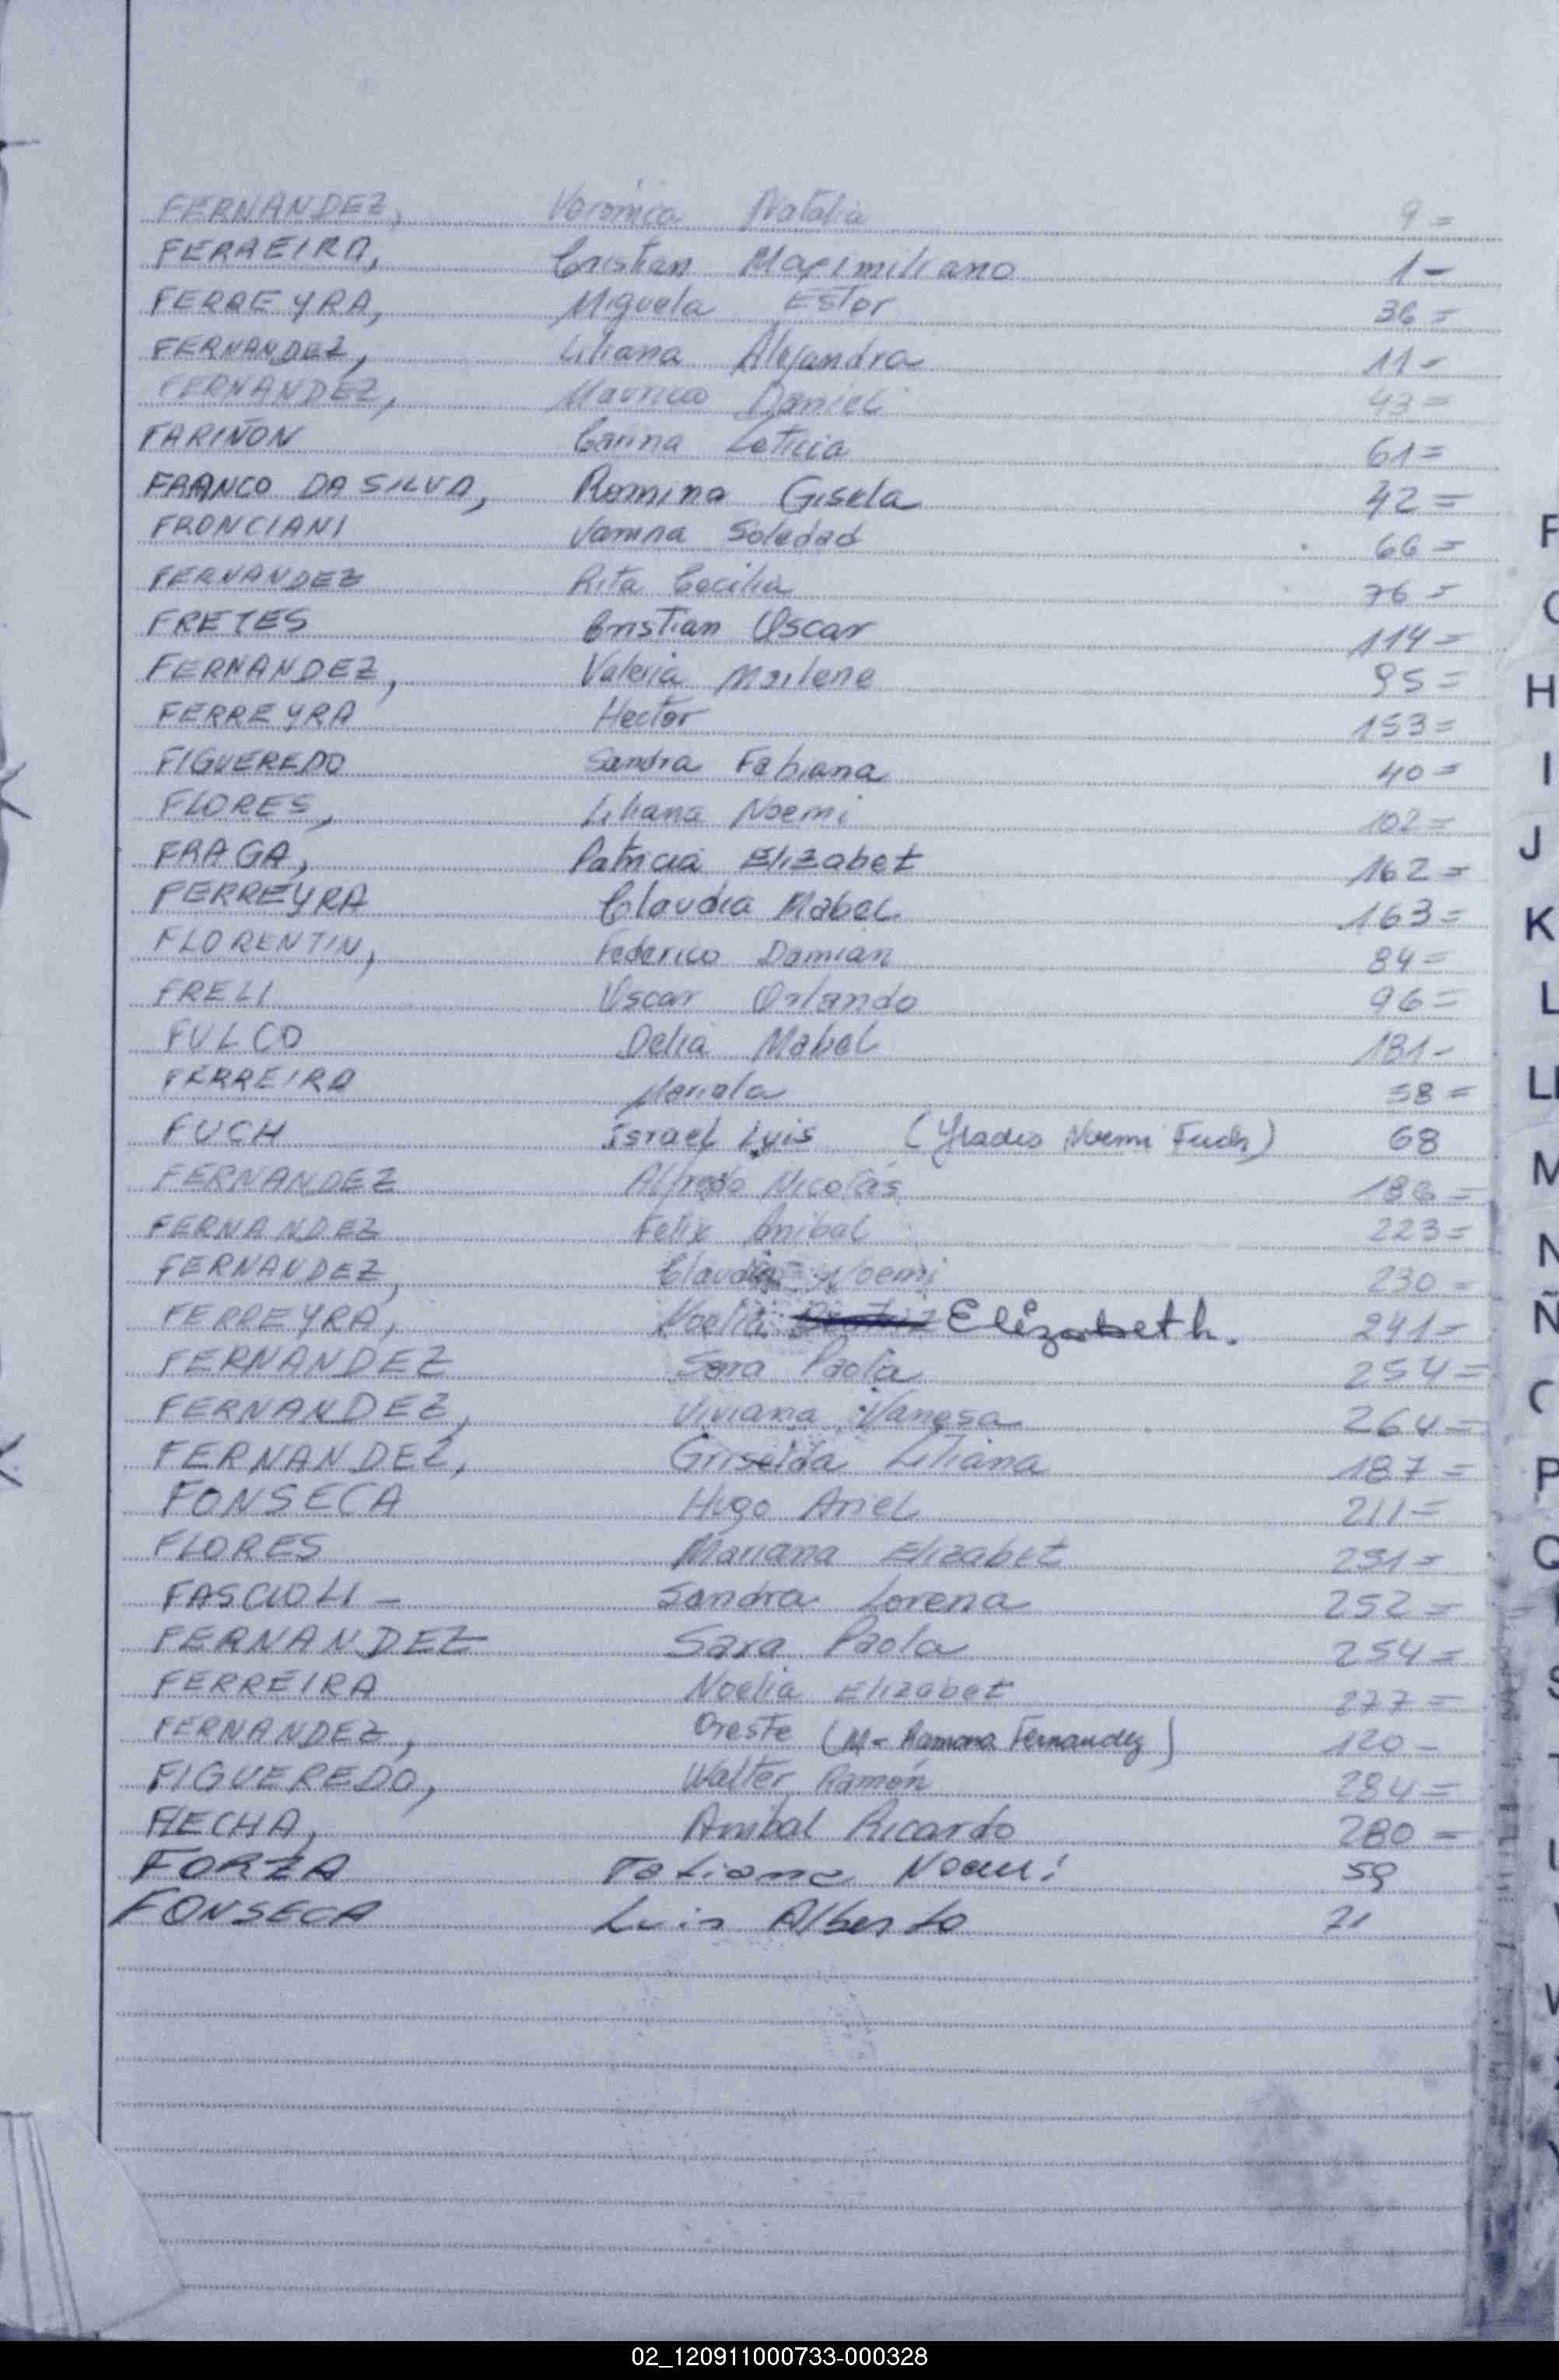 FERNANDEZ, Verónica Natalia 9=
FERREIRA, Cristian Maximiliano 1-
FERREYRA, Miguela Ester 36=
FERNANDEZ, Liliana Alejandra 11=
FERNANDEZ, Mauricio Daniel 43=
FARIÑON Carina Leticia 61=
FRANCO DA SILVA, Romina Gisela 42=
FRONCIANI Vanina Soledad 66=
FERNANDEZ Rita Cecilia 76=
FRETES Cristian Oscar 114=
FERNANDEZ, Valeria Marlene 95=
FERREYRA Hector 153=
FIGUEREDO Sandra Fabiana 40=
FLORES, Liliana Noemi 102=
FRAGA, Patricia Elizabet 162=
FERREYRA Claudia Mabel 163=
FLORENTIN, Federico Damian 84=
FRELI Oscar Orlando 96=
FULCO Delia Mabel 181-
FERREIRA Mariela 58=
FUCH Israel Luis (Gladis Noemi Fuch) 68
FERNANDEZ Alfredo Nicolás 186=
FERNANDEZ Felix Anibal 223=
FERNANDEZ, Claudia Noemi 230=
FERREYRA, Noelia Elizabeth. 241=
FERNANDEZ Sara Paola 254=
FERNANDEZ, Viviana Vanesa 264=
FERNANDEZ, Griselda Liliana 187=
FONSECA Hugo Ariel 211=
FLORES Mariana Elizabet 251=
FASCIOLI - Sandra Lorena 252=
FERNANDEZ Sara Paola 254=
FERREIRA Noelia Elizabet 277=
FERNANDEZ, Oreste (M= Ramona Fernandez) 120-
FIGUEREDO, Walter Ramón 284=
FLECHA, Anibal Ricardo 280=
FORZA Tatiana Noemi 59
FONSECA Luis Alberto 71
F
H
I
J
K
L
LL
M
N
Ñ
P
Q
S
02_120911000733-000328